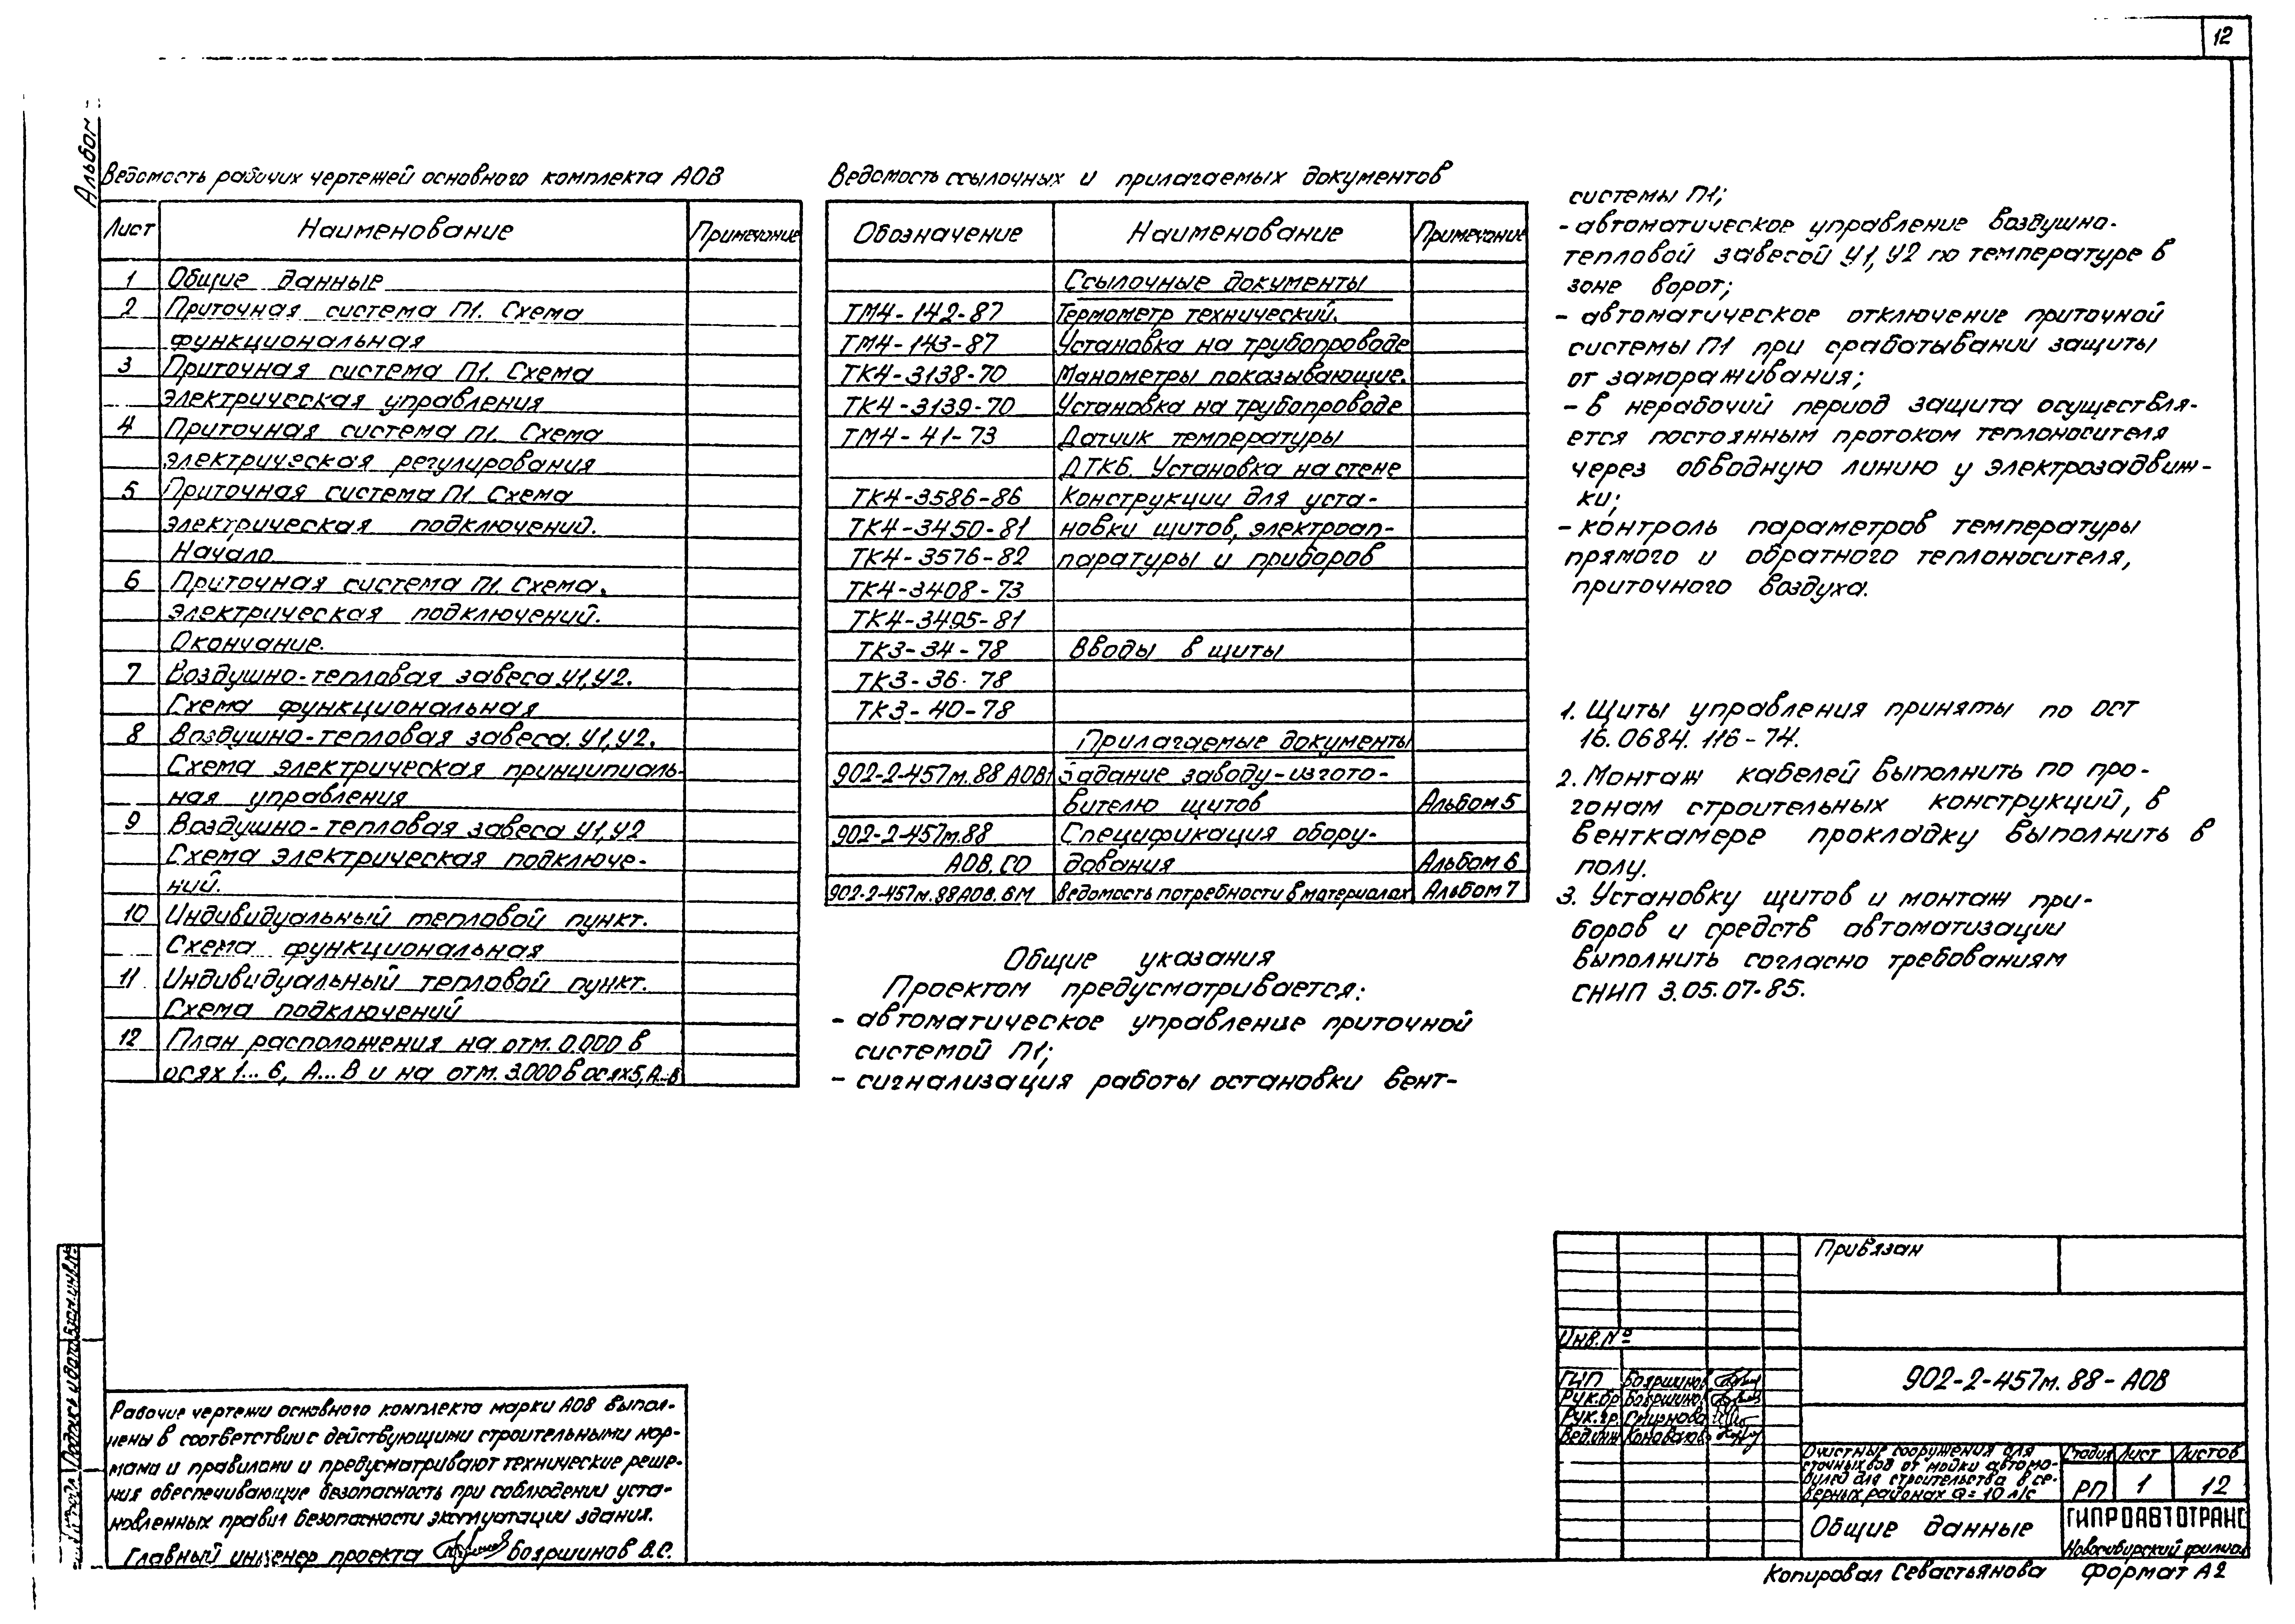 12
Альбом
Ведомость рабочих чертежей основного комплекта АОВ
Лист Наименование Примечание
1 Общие данные
2 Приточная система П1. Схема
функциональная
3 Приточная система П1. Схема
электрическая управления
4 Приточная система П1. Схема
электрическая регулирования
5 Приточная система П1 Схема
электрическая подключений.
Начало.
6 Приточная система П1. Схема.
электрическая подключений.
Окончание.
7 Воздушно-тепловая завеса У1,У2.
Схема функциональная
8 Воздушно-тепловая завеса. У1,У2.
Схема электрическая принципиаль-
ная управления
9 Воздушно-тепловая завеса У1,У2
Схема электрическая подключе-
ний.
10 Индивидуальный тепловой пункт.
Схема функциональная
11 Индивидуальный тепловой пункт.
Схема подключений
12 План расположения на отм. 0.000 в
осях 1...6, А...В и на отм. 3.000 в осях 5, А...В
Ведомость ссылочных и прилагаемых документов
Обозначение Наименование Примечание
Ссылочные документы
ТМ4-142-87 Термометр технический.
ТМ4-143-87 Установка на трубопроводе
ТК4-3138-70 Манометры показывающие.
ТК4-3139-70 Установка на трубопроводе
ТМ4-41-73 Датчик температуры
ДТКБ. Установка на стене
ТК4-3586-86 Конструкции для уста-
ТК4-3450-81 новки щитов, электроап-
ТК4-3576-82 паратуры и приборов
ТК4-3408-73
ТК4-3495-81
ТК3-34-78 Вводы в щиты
ТК3-36-78
ТК3-40-78
Прилагаемые документы
902-2-457м.88 АОВ1 Задание заводу-изгото-
вителю щитов Альбом 5
902-2-457м.88 Спецификация обору-
АОВ.СО дования Альбом 6
902-2-457м.88 АОВ. ВМ Ведомость потребности в материалах Альбом 7
Общие указания
Проектом предусматривается:
- автоматическое управление приточной
системой П1;
- сигнализация работы остановки вент-
системы П1;
- автоматическое управление воздушно-
тепловой завесой У1, У2 по температуре в
зоне ворот;
- автоматическое отключение приточной
системы П1 при срабатывании защиты
от замораживания;
- в нерабочий период защита осуществля-
ется постоянным протоком теплоносителя
через обводную линию у электрозадвиж-
ки;
- контроль параметров температуры
прямого и обратного теплоносителя,
приточного воздуха.
1. Щиты управления приняты по ОСТ
16. 0684. 116-74.
2. Монтаж кабелей выполнить по про-
гонам строительных конструкций, в
венткамере прокладку выполнить в
полу.
3. Установку щитов и монтаж при-
боров и средств автоматизации
выполнить согласно требованиям
СНИП 3.05.07-85.
Рабочие чертежи основного комплекта марки АОВ выпол-
нены в соответствии с действующими строительными нор-
мами и правилами и предусматривают технические реше-
ния обеспечивающие безопасность при соблюдении уста-
новленных правил безопасности эксплуатации здания.
Главный инженер проекта Бояршинов В.С.
Подпись и дата Взам.инв.№
Привязан
Инв.№
ГИП Бояршинов
Рук.бр Бояршинов
Рук.гр. Смирнова
Вед.инж Коновалов
902-2-457м.88-АОВ
Очистные сооружения для
сточных вод от мойки автомо-
билей для строительства в се-
верных районах Q=10 л/с
Стадия Лист Листов
РП 1 12
Общие данные
ГИПРОАВТОТРАНС
Новосибирский филиал
Копировал Севастьянова Формат А2